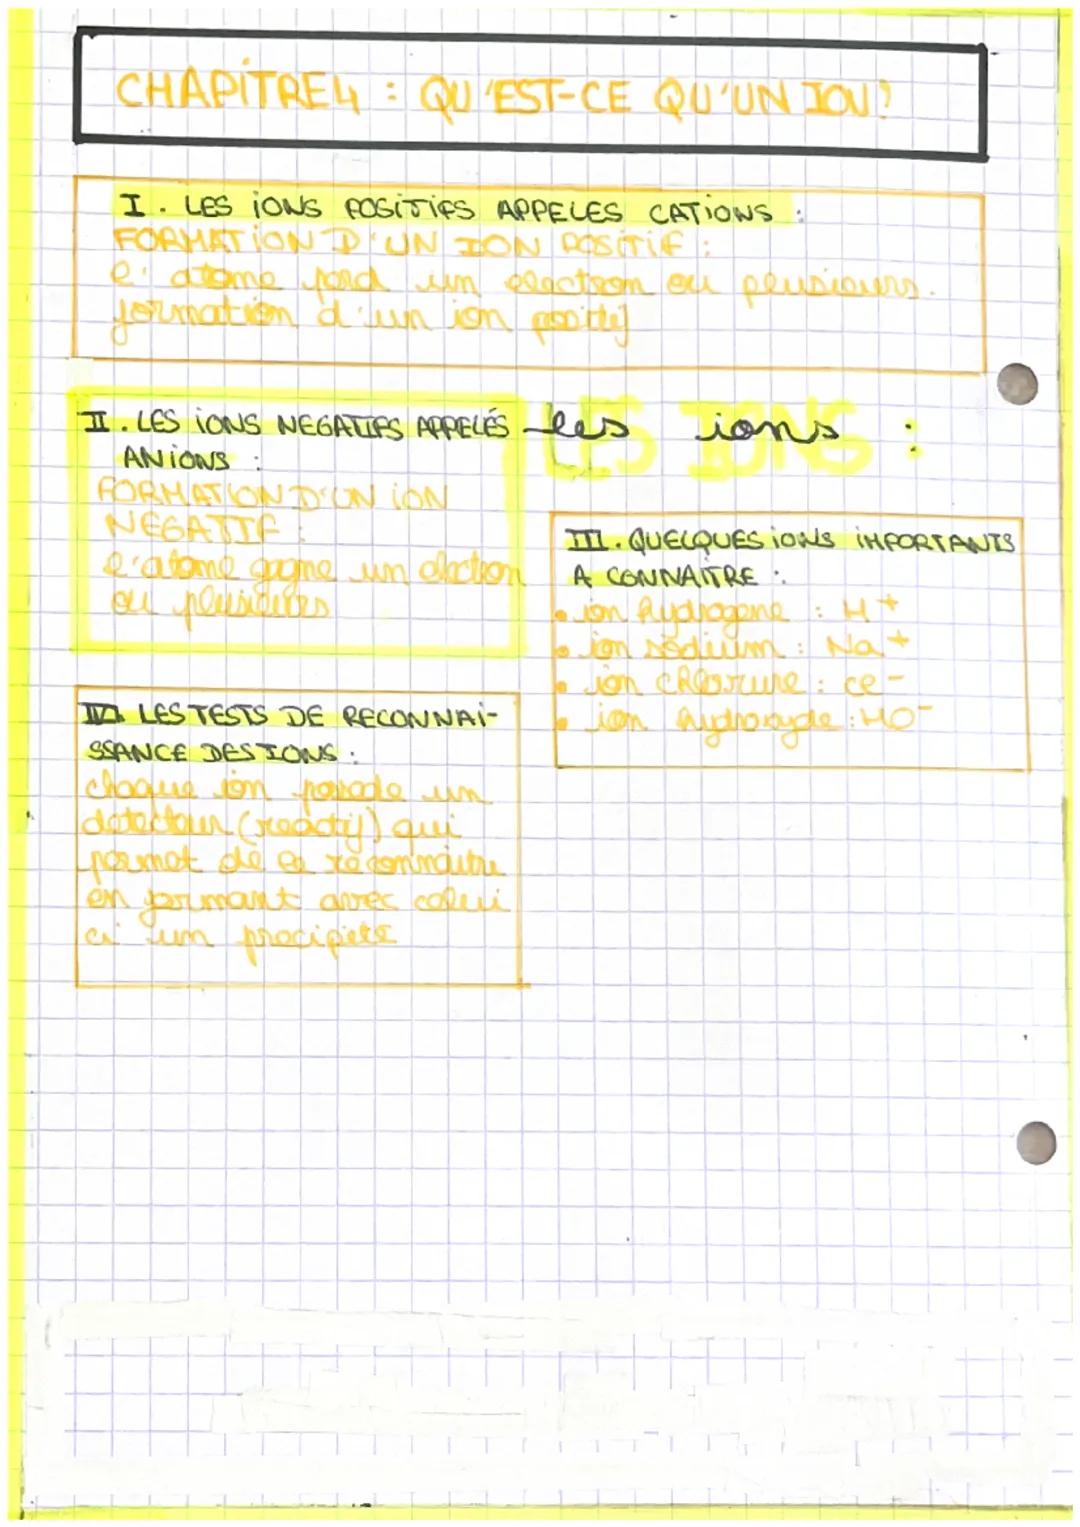 CHAPITRE 4 : QU'EST-CE QU'UN ION?
I. LES IONS POSITIFS APPELES CATIONS :
FORMATION D'UN ION POSITIF :
l'atome perd un electron ou plusieurs.
formation d'un ion positif
II. LES IONS NEGATIFS APPELÉS
ANIONS :
FORMATION D'UN ION
NEGATIF :
l'atome gagne un electron
ou plusieurs
les ions :
LES IONS :
III. QUELQUES IONS IMPORTANTS
A CONNAITRE :
• ion hydrogene : H+
• ion sodium : Na+
• ion chlorure : Cl-
• ion hydroxyde : HO-
IV. LES TESTS DE RECONNAI-
SSANCE DES IONS :
chaque ion possede un
detecteur (reactif) qui
permet de le reconnaitre
en formant avec celui
ci un precipité